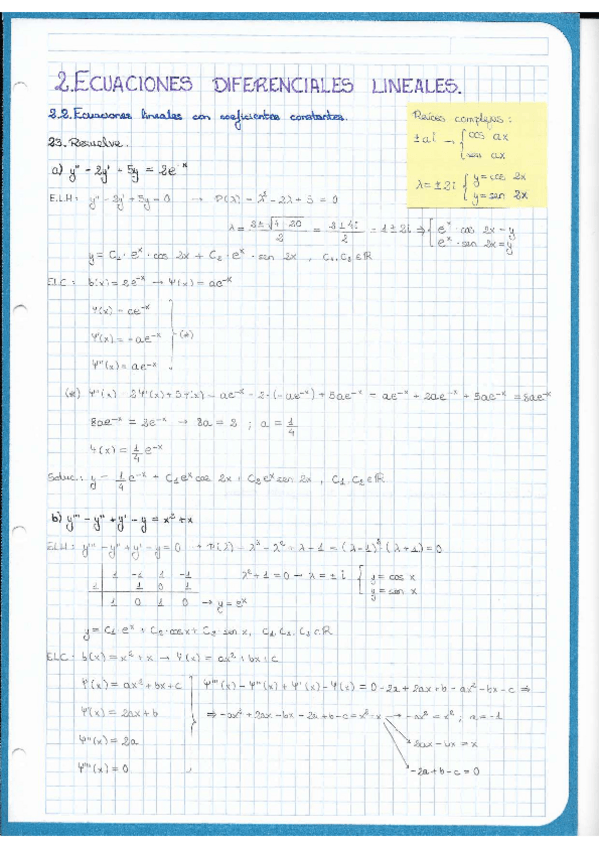 2. ECUACIONES DIFERENCIALES LINEALES.
2.2. Ecuaciones lineales con coeficientes constantes.
Raíces complejas:
±ai → { cos ax
sen ax
λ = ±2i { y = cos 2x
y = sen 2x
23. Resuelve.
a) y'' - 2y' + 5y = 2e^-x
E.L.H: y'' - 2y' + 5y = 0 → P(λ) = λ² - 2λ + 5 = 0
λ = 2 ± √4-20 / 2 = 2 ± 4i / 2 = 1 ± 2i ⇒ { e^x · cos 2x = y
e^x · sen 2x = y
y = C₁ · e^x · cos 2x + C₂ · e^x · sen 2x , C₁, C₂ ∈ ℝ
ELC: b(x) = 2e^-x → Ψ(x) = ae^-x
Ψ(x) = ae^-x
Ψ'(x) = -ae^-x } (*)
Ψ''(x) = ae^-x
(*) Ψ''(x) - 2Ψ'(x) + 5Ψ(x) = ae^-x - 2·(-ae^-x) + 5ae^-x = ae^-x + 2ae^-x + 5ae^-x = 8ae^-x
8ae^-x = 2e^-x → 8a = 2 ; a = 1/4
Ψ(x) = 1/4 e^-x
Soluc.: y = 1/4 e^-x + C₁e^x cos 2x + C₂e^x sen 2x , C₁, C₂ ∈ ℝ
b) y''' - y'' + y' - y = x² + x
E.L.H: y''' - y'' + y' - y = 0 → P(λ) = λ³ - λ² + λ - 1 = (λ-1)·(λ²+1) = 0
1 -1 1 -1
1 1 0 1
1 0 1 0 → y = e^x
λ² + 1 = 0 → λ = ± i { y = cos x
y = sen x
y = C₁ · e^x + C₂ · cos x + C₃ · sen x, C₁, C₂, C₃ ∈ ℝ
ELC: b(x) = x² + x → Ψ(x) = ax² + bx + c
Ψ(x) = ax² + bx + c
Ψ'''(x) - Ψ''(x) + Ψ'(x) - Ψ(x) = 0 - 2a + 2ax + b - ax² - bx - c ⇒
Ψ'(x) = 2ax + b
⇒ -ax² + 2ax - bx - 2a + b - c = x² + x → -ax² = x² ; a = -1
Ψ''(x) = 2a
2ax - bx = x
Ψ'''(x) = 0
-2a + b - c = 0